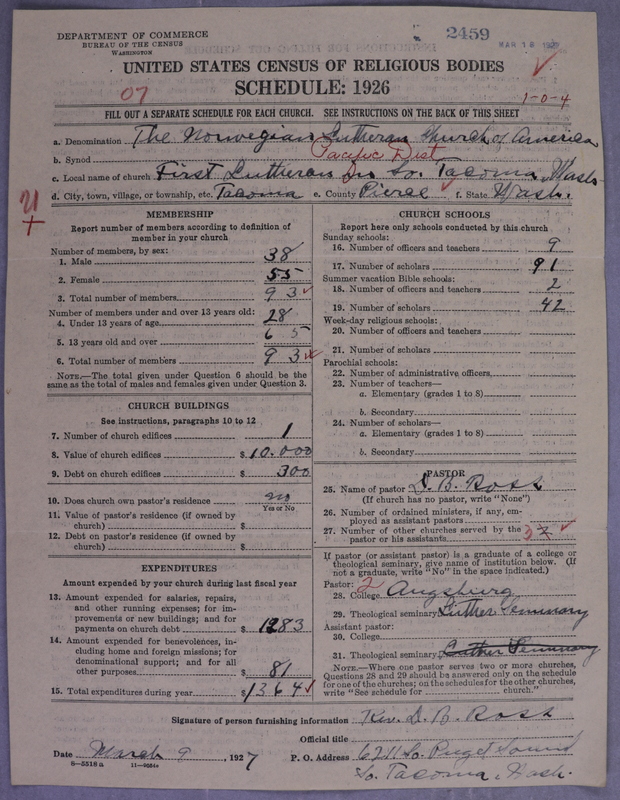 DEPARTMENT OF COMMERCE
BUREAU OF THE CENSUS
WASHINGTON
2459
MAR 18 1927
UNITED STATES CENSUS OF RELIGIOUS BODIES
SCHEDULE: 1926
07
1-0-4
FILL OUT A SEPARATE SCHEDULE FOR EACH CHURCH. SEE INSTRUCTIONS ON THE BACK OF THIS SHEET
a. Denomination The Norwegian Lutheran Church of America
b. Synod Pacific Dist
c. Local name of church First Lutheran In So. Tacoma, Wash
d. City, town, village, or township, etc. Tacoma e. County Pierce f. State Wash.
MEMBERSHIP
Report number of members according to definition of
member in your church
Number of members, by sex:
1. Male 38
2. Female 55
3. Total number of members 93
Number of members under and over 13 years old:
4. Under 13 years of age 28
5. 13 years old and over 65
6. Total number of members 93
NOTE.—The total given under Question 6 should be the
same as the total of males and females given under Question 3.
CHURCH BUILDINGS
See instructions, paragraphs 10 to 12
7. Number of church edifices 1
8. Value of church edifices $10.000
9. Debt on church edifices 300
10. Does church own pastor's residence no
Yes or No
11. Value of pastor's residence (if owned by
church) $
12. Debt on pastor's residence (if owned by
church) $
EXPENDITURES
Amount expended by your church during last fiscal year
13. Amount expended for salaries, repairs,
and other running expenses; for im-
provements or new buildings; and for
payments on church debt $1283
14. Amount expended for benevolences, in-
cluding home and foreign missions; for
denominational support; and for all
other purposes $81
15. Total expenditures during year $1364
CHURCH SCHOOLS
Report here only schools conducted by this church
Sunday schools:
16. Number of officers and teachers 9
17. Number of scholars 91
Summer vacation Bible schools:
18. Number of officers and teachers 2
19. Number of scholars 42
Week-day religious schools:
20. Number of officers and teachers
21. Number of scholars
Parochial schools:
22. Number of administrative officers
23. Number of teachers—
a. Elementary (grades 1 to 8)
b. Secondary
24. Number of scholars—
a. Elementary (grades 1 to 8)
b. Secondary
PASTOR
25. Name of pastor L. B. Ross
(If church has no pastor, write "None")
26. Number of ordained ministers, if any, em-
ployed as assistant pastors
27. Number of other churches served by the
pastor or his assistants
If pastor (or assistant pastor) is a graduate of a college or
theological seminary, give name of institution below. (If
not a graduate, write "No" in the space indicated.)
Pastor: 2
28. College Augsburg
29. Theological seminary Luther Seminary
Assistant pastor:
30. College
31. Theological seminary Luther Seminary
NOTE.—Where one pastor serves two or more churches,
Questions 28 and 29 should be answered only on the schedule
for one of the churches; on the schedules for the other churches,
write "See schedule for church."
Signature of person furnishing information Rev. L. B. Ross
Official title
Date March 9, 1927 P. O. Address 6211 So. Puget Sound
8-5518a 11-9664a
So. Tacoma, Wash.